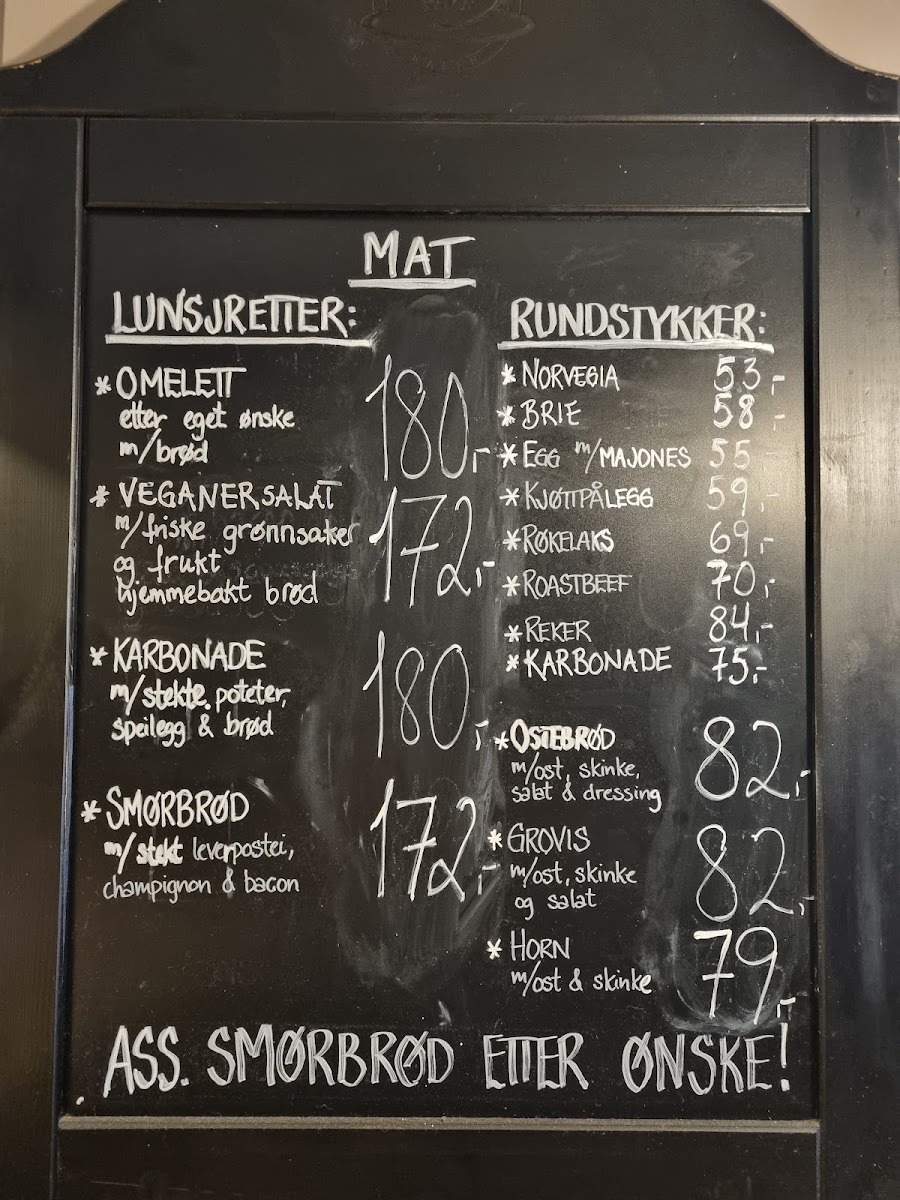 MAT
LUNSJRETTER:
* OMELETT 180,-
etter eget ønske
m/brød
* VEGANERSALAT 172,-
m/friske grønnsaker
og frukt
hjemmebakt brød
* KARBONADE 180,-
m/stekte poteter,
speilegg & brød
* SMØRBRØD 172,-
m/stekt leverpostei,
champignon & bacon
RUNDSTYKKER:
* NORVEGIA 53,-
* BRIE 58,-
* EGG m/MAJONES 55,-
* KJØTTPÅLEGG 59,-
* RØKELAKS 69,-
* ROASTBEEF 70,-
* REKER 84,-
* KARBONADE 75,-
* OSTEBRØD 82,-
m/ost, skinke,
salat & dressing
* GROVIS 82,-
m/ost, skinke
og salat
* HORN 79,-
m/ost & skinke
. ASS. SMØRBRØD ETTER ØNSKE!